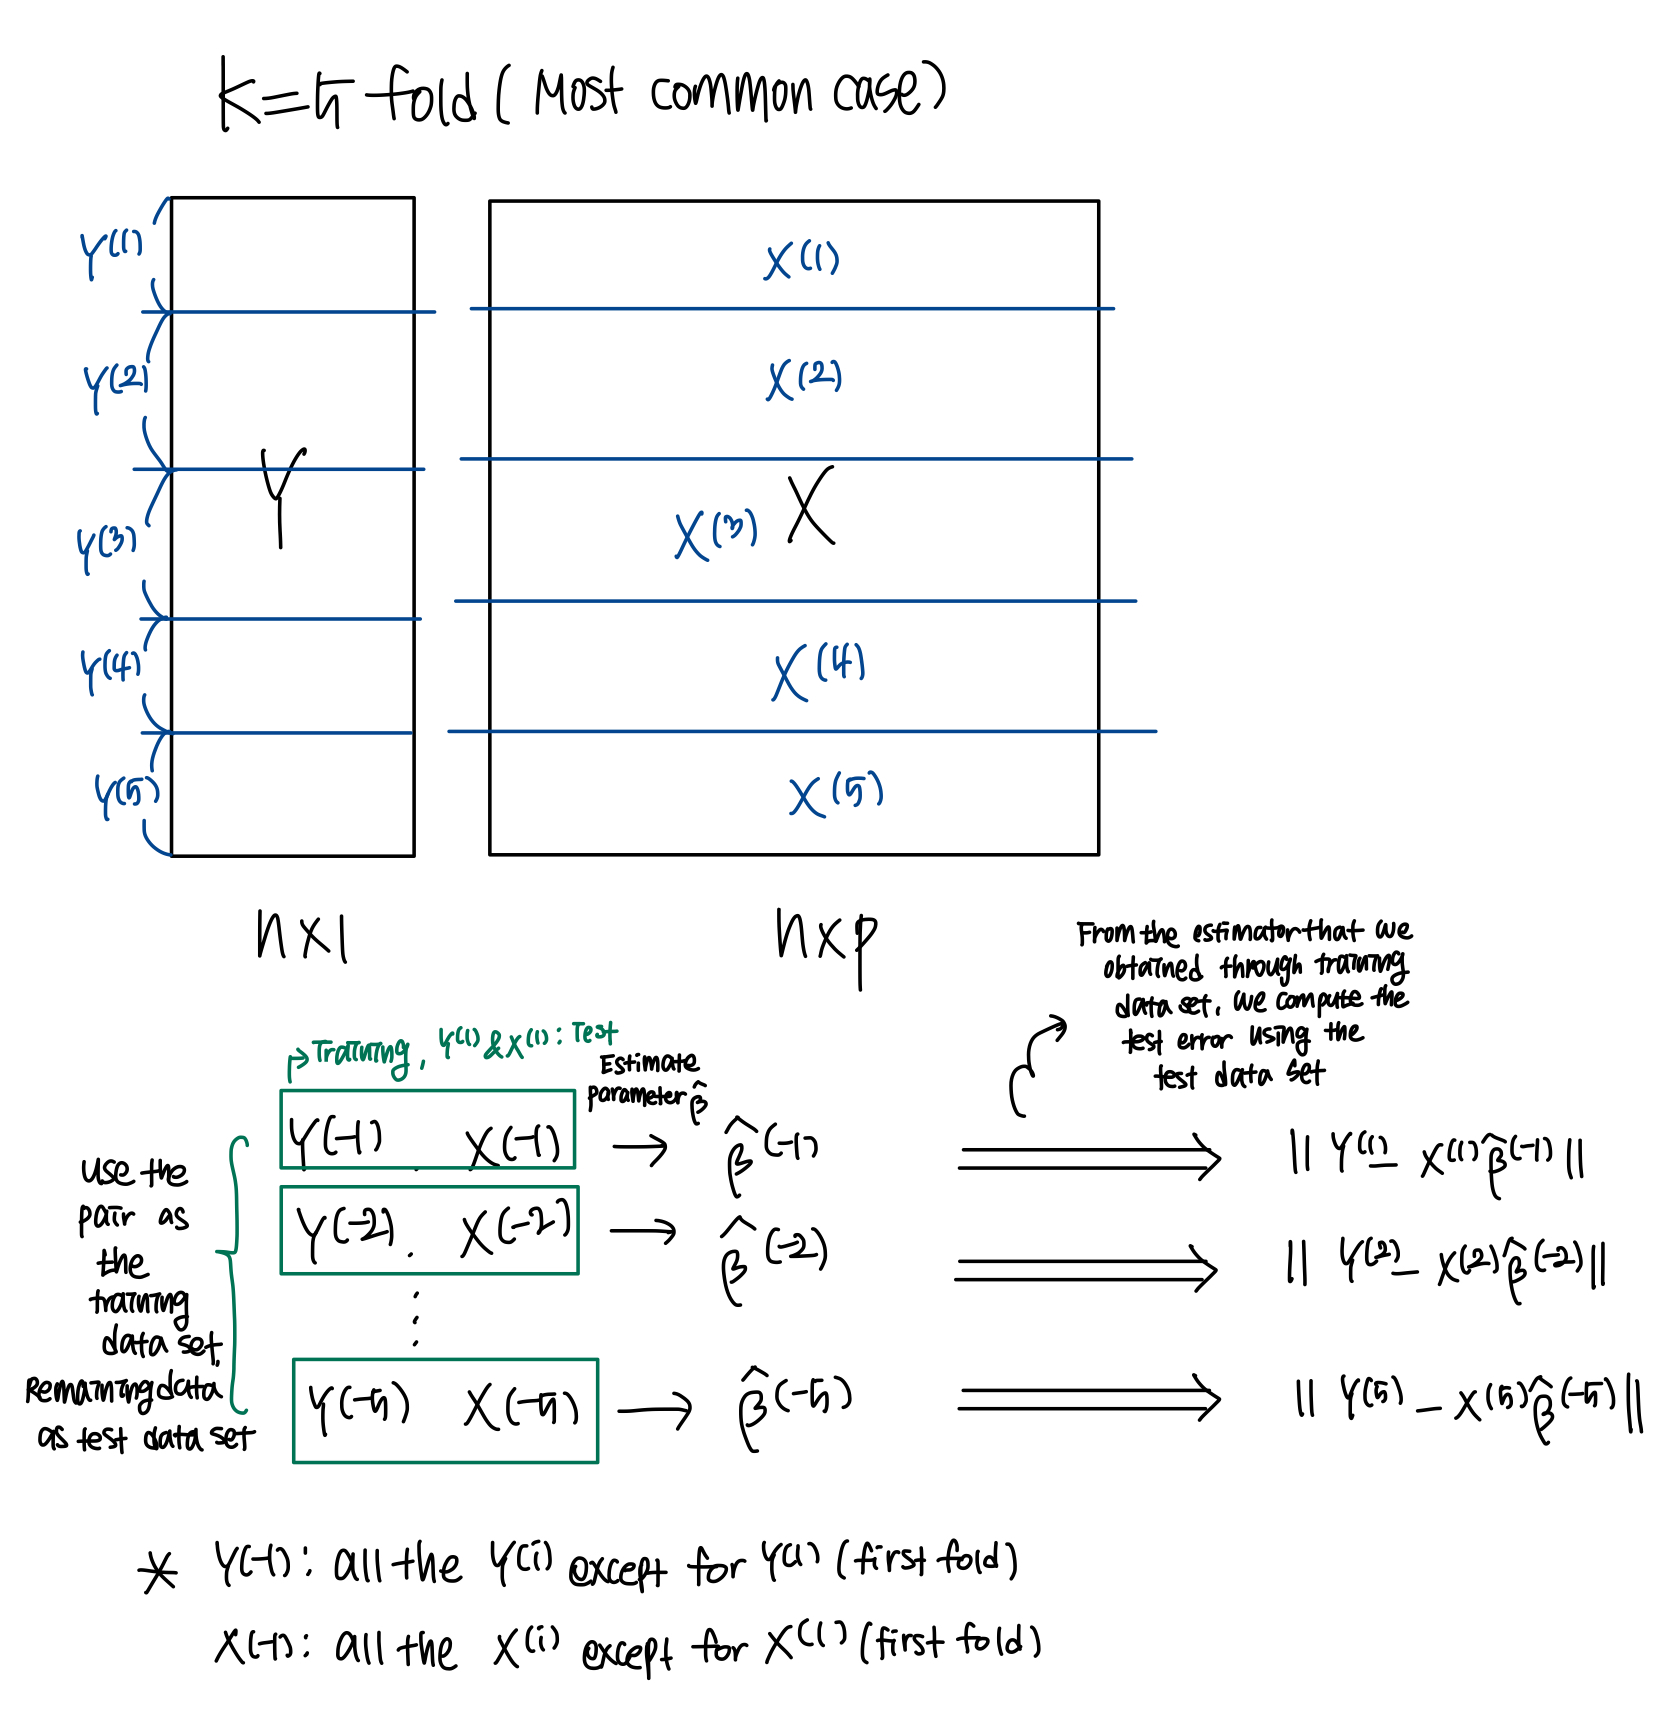 K=5-fold (Most common case)
Y(1)
X(1)
Y(2)
X(2)
Y
X
Y(3)
X(3)
Y(4)
X(4)
Y(5)
X(5)
n×1
n×p
From the estimator that we
obtained through training
data set, we compute the
test error using the
test data set
Training, Y(1) & X(1) : Test
Estimate
parameter β̂
Use the
pair as
the
training
data set,
Remaining data
as test data set
Y(-1) . X(-1) → β̂(-1) ⇒ || Y(1) - X(1) β̂(-1) ||
Y(-2) . X(-2) → β̂(-2) ⇒ || Y(2) - X(2) β̂(-2) ||
⋮
Y(-5) X(-5) → β̂(-5) ⇒ || Y(5) - X(5) β̂(-5) ||
* Y(-1) : all the Y(i) except for Y(1) (first fold)
X(-1) : all the X(i) except for X(1) (first fold)